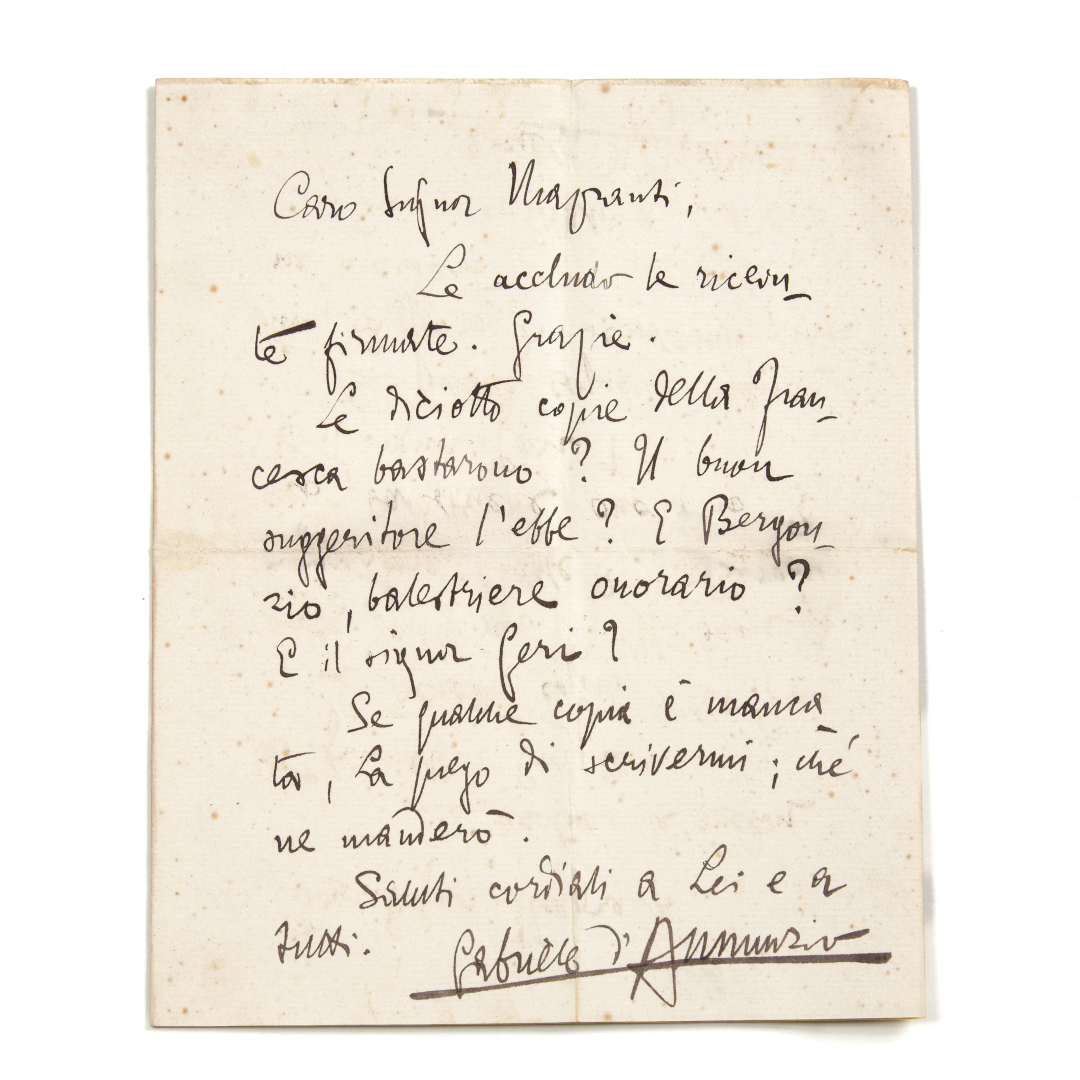 Caro Signor Mazzanti,
Le accludo le ricevu-
te firmate. Grazie.
Le diciotto copie della Fran-
cesca bastarono? Il buon
suggeritore l'ebbe? E Bergon-
zio, balestriere onorario?
E il signor Geri?
Se qualche copia è manca-
ta, La prego di scrivermi; ché
ne manderò.
Saluti cordiali a Lei e a
tutti.
Gabriele d'Annunzio